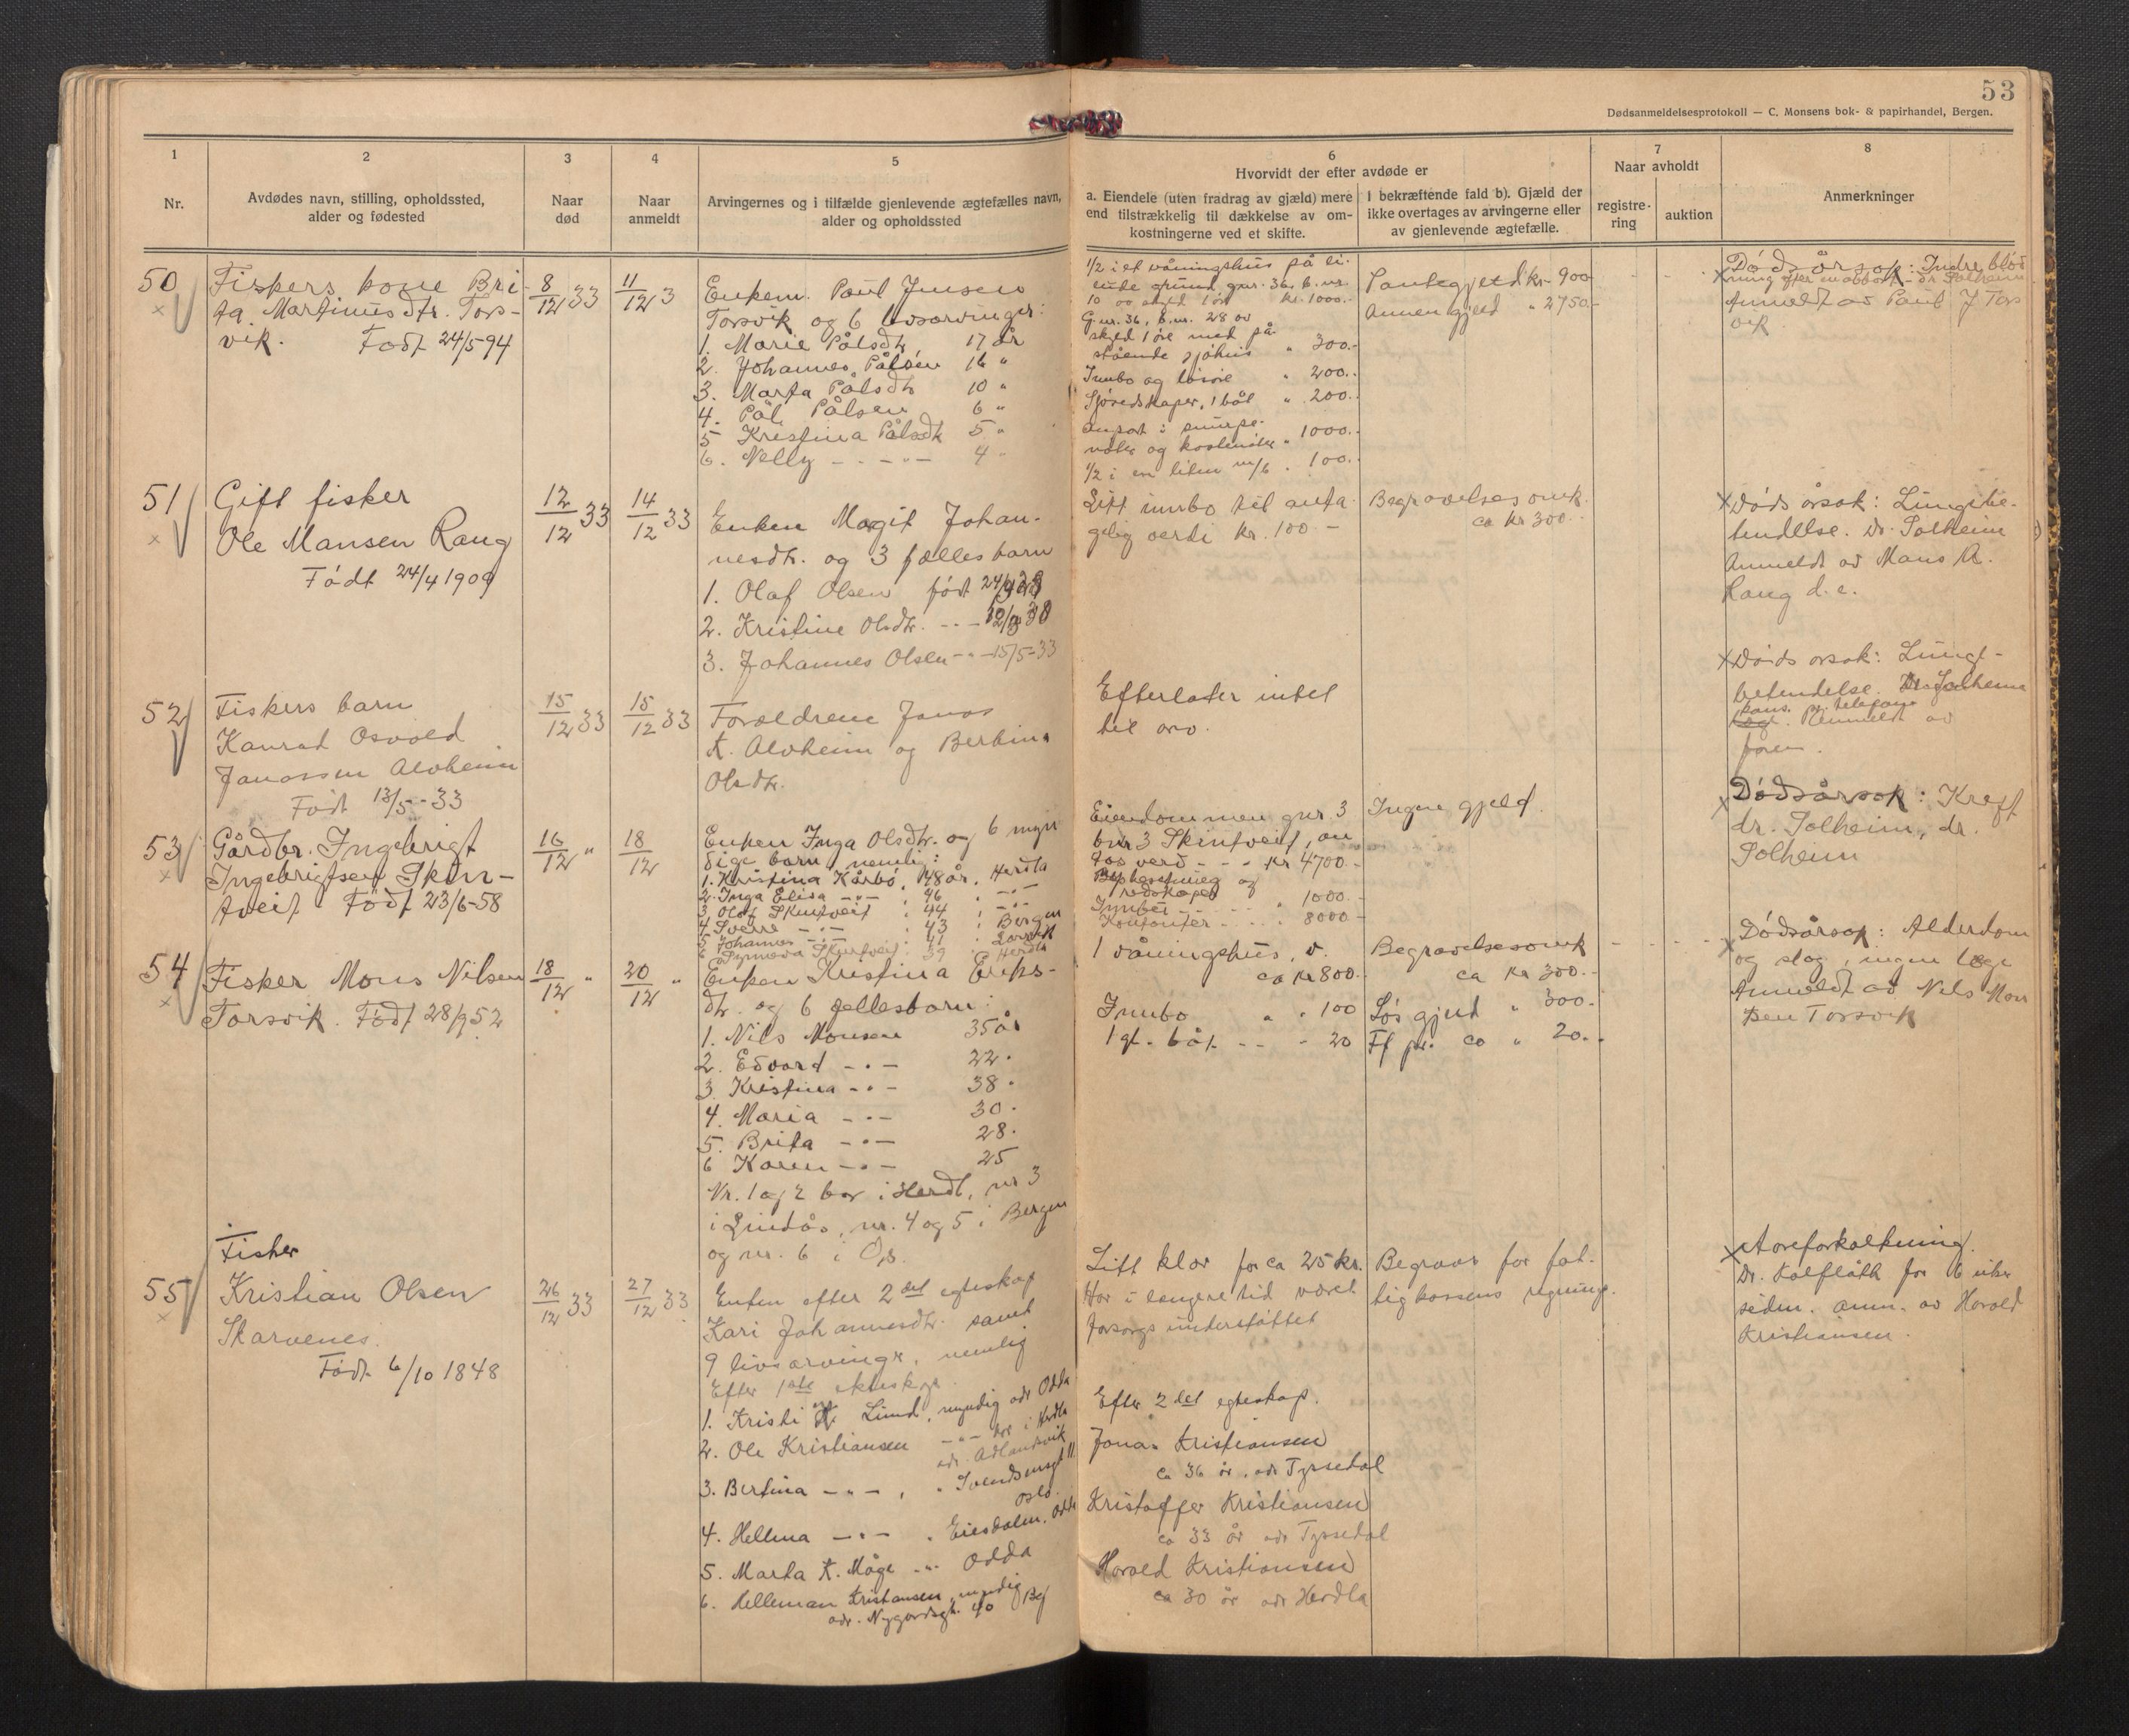 53
Dødsanmeldelsesprotokoll — C. Monsens bok- & papirhandel, Bergen.
1
Nr.
2
Avdødes navn, stilling, opholdssted,
alder og fødested
3
Naar
død
4
Naar
anmeldt
5
Arvingernes og i tilfælde gjenlevende ægtefælles navn,
alder og opholdssted
6
Hvorvidt der efter avdøde er
a. Eiendele (uten fradrag av gjæld) mere
end tilstrækkelig til dækkelse av om-
kostningerne ved et skifte.
I bekræftende fald b). Gjæld der
ikke overtages av arvingerne eller
av gjenlevende ægtefælle.
7
Naar avholdt
registre-
ring
auktion
8
Anmerkninger
50
Fiskers kone Bri-
ta Martinusdtr. Tors-
vik. Født 24/5 94
8/12 33
11/12 3
Enkem. Paul Jensen
Torsvik og 6 livsarvinger:
1. Marie Pålsdtr 17 år
2. Johannes Pålsen 16 "
3. Marta Pålsdtr 10 "
4. Pål Pålsen 6 "
5 Kristina Pålsdtr 5 "
6. Nelly - " - 4 "
1/2 i et våningshus på lei-
ende grund, gnr. 36, b.nr.
10 av skyld 1 øre kr. 1000.-
G.nr. 36, b.nr. 28 av
skyld 1 øre med på-
stående sjøhus " 300.-
Innbo og løsøre " 200.-
Sjøredskaper, 1 båt " 200.-
nøter og " 1000.-
1/2 i en liten m/b " 100.-
Pantegjeld kr. 900
Annen gjeld " 2750.-
Dødsårsak: Indre blød
ning efter - dr. Solheim
Anmeldt av Paul J Tors
vik
51
Gift fisker
Ole Mansen Rang
Født 24/4 1909
12/12 33
14/12 33
Enken Magit Johan-
nesdtr. og 3 fælles barn
1. Olaf Olsen født 24/9
2. Kristine Olsdtr. - " -
3. Johannes Olsen - " - 15/5-33
Litt innbo til anta-
gelig verdi kr. 100 -
Begravelsesomk.
ca kr 300.-
Døds årsak: Lungebe-
tendelse. Dr. Solheim
Anmeldt av Mans A.
Rang d.e.
52
Fiskers barn
Konrad Osvald
Janassen Alvheim
Født 13/5-33
15/12 33
15/12 33
Foreldrene Janas
K. Alvheim og Berbina
Olsdtr.
Efterlater intet
til arv.
Døds orsak: Lunge-
betendelse. Dr. Solheim
kons. pr. telefon
Anmeldt av
faren.
53
Gårdbr. Ingebrigt
Ingebrigtsen Skin-
tveit Født 23/6-58
16/12 "
18/12
Enken Inga Olsdtr. og 6 myn
dige barn nemlig:
1. Kristina Kårbø, 48 år, Herdla
2. Inga Elisa - " - 46
3. Olaf Skintveit 44
4 Sverre - " - 43 Bergen
5 Johannes - " - 41
6 Skintveit 39 Herdla
Eiendommen gnr. 3
bnr 3 Skintveit, an
tas verd - - kr 4700.-
Behesetning og
redskaper 1000.-
Innbo
Kontanter 8000.-
Ingen gjeld.
Dødsårsak: Kreft
dr. Solheim, dr.
Solheim
54
Fisker Mons Nilsen
Torsvik. Født 28/9 52
18/12 "
20/12 "
Enken Kristina Eriks-
dtr. og 6 fellesbarn:
1. Nils Monsen 35 år
2. Edvard - " - 22 "
3. Kristina - " - 38 "
4. Maria - " - 30 "
5. Brita - " - 28 "
6 Karen - " - 25
Nr. 1 og 2 bor i Herdl, nr 3
i Lindås, nr. 4 og 5 i Bergen
og nr. 6 i Os.
1 våningshus, v.
ca kr 800.-
Innbo " " 100
1 gl. båt - - - 20
Begravelsesomk
ca kr 300.-
Løs gjeld " 300.-
Ff pr. ca " 20.-
Dødsårsak: Alderdom
og slag, ingen læge
Anmeldt av Nils Mon
sen Torsvik
55
Fisker
Kristian Olsen
Skarvenes.
Født 6/10 1848
26/12 33
27/12 33
Enken efter 2det egteskap
Kari Johannesdtr. samt
9 livsarvinger, nemlig
Efter 1ste ekteskap.
1. Kristi Lund, myndig adr Odda
2. Ole Kristiansen - " - bor i Herdla
adr. Adlandsvik
3. Bertina - " - , " Svendsensgt 11
Oslo.
4. Hellma - " - " Eiesdalen, Odda
5. Marta K. Måge - " - Odda
6. Helleman Kristiansen, myndig
adr. Nygårdsgt. 40 Bg
Litt klær for ca 25 kr.
Har i lengere tid været
forsorgsunderstøttet
Efter 2det egteskap.
Jonas Kristiansen
ca 36 år, adr Tyssedal
Kristoffer Kristiansen
ca 33 år adr Tyssedal
Harald Kristiansen
ca 30 år adr Herdla
Begraves for fat-
tigkassens regning.
Åreforkalkning.
Dr. Kalflåth for 6 uker
siden. Anm. av Harald
Kristiansen.